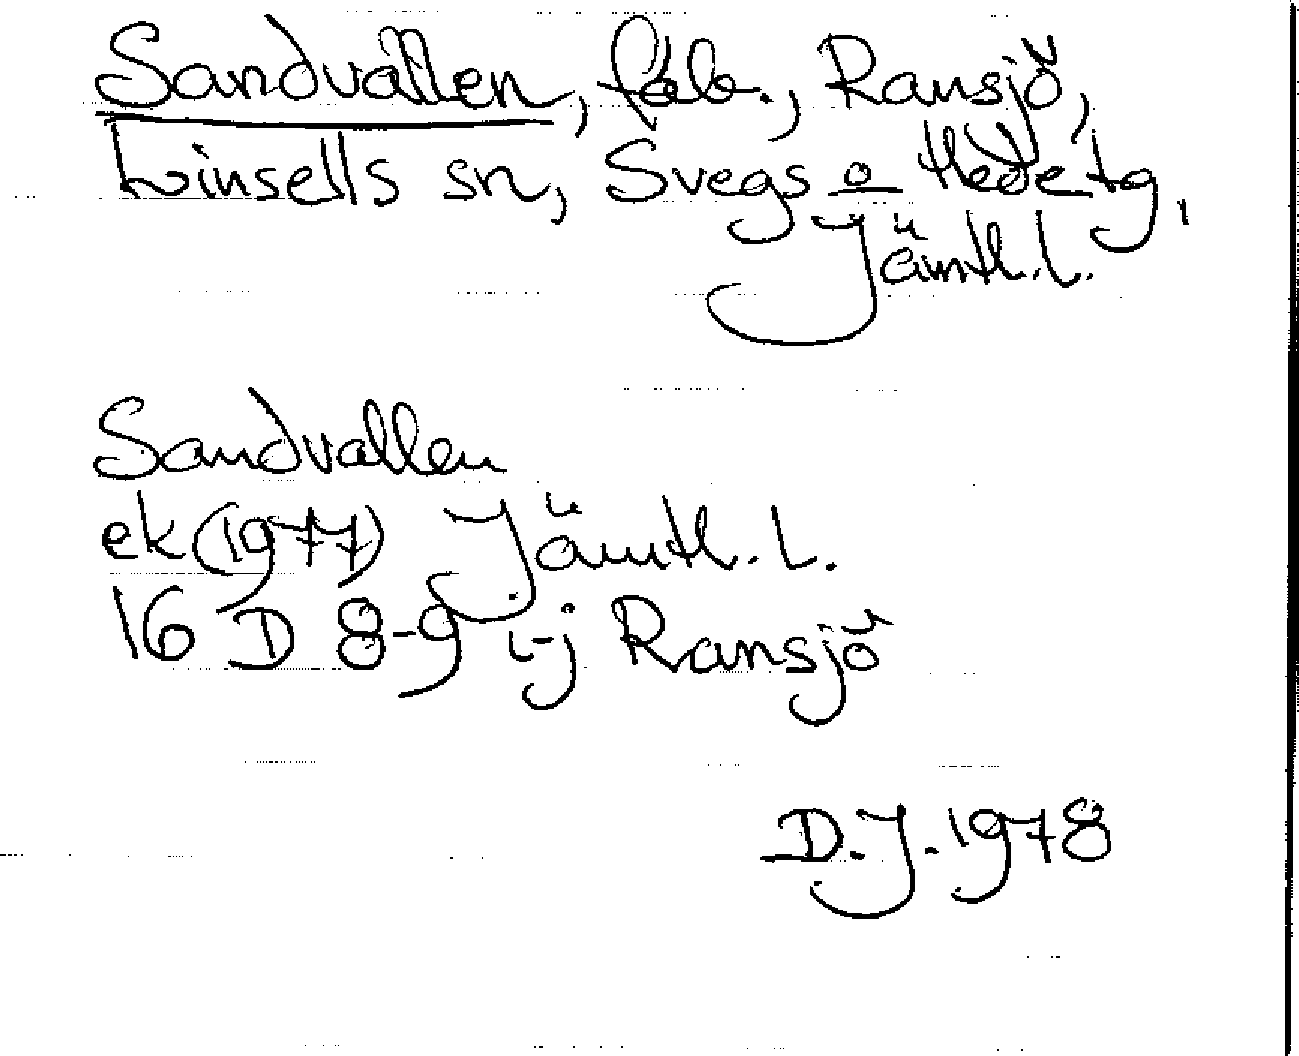 Sandvallen, fäb., Ransjö,
Linsells sn, Svegs o Hede tg,
Jämtl. l.
Sandvallen
ek (1977) Jämtl. l.
16 D 8-9 i-j Ransjö
D.J. 1978